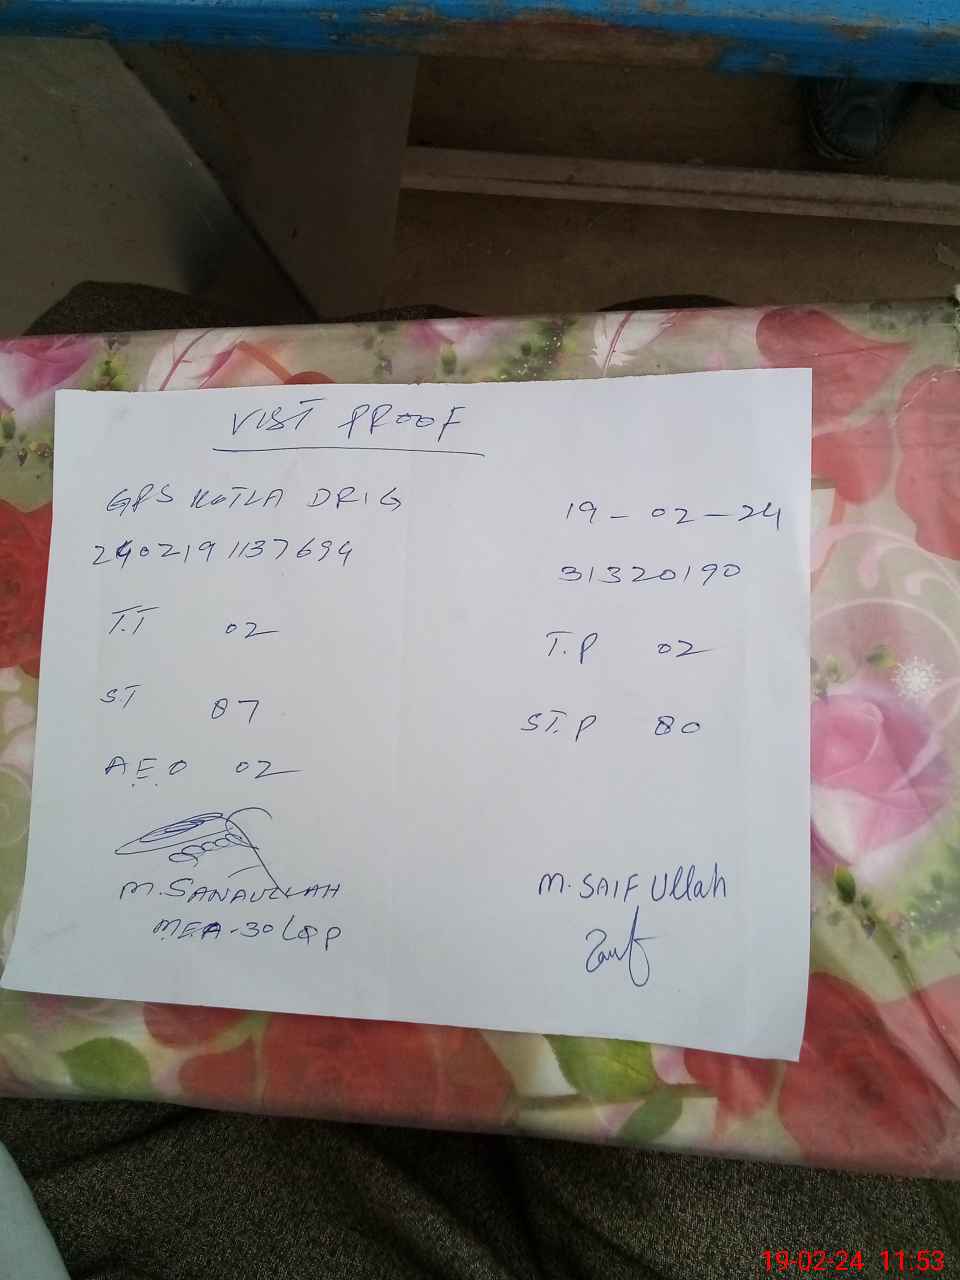 VIST PROOF
GPS KOTLA DRIG
19-02-24
2402191137694
31320190
T.T 02
T.P 02
S.T 07
ST.P 80
A.E.O 02
M. SANAULLAH
M. SAIF Ullah
MEA-30 LAP
19-02-24 11:53